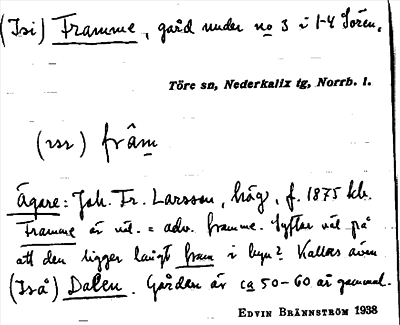 (Isi) Framme, gård under no 3 i 1-4 Sören.
Töre sn, Nederkalix tg, Norrb. l.
(rsr) frâm
Ägare: Joh. Fr. Larsson, häg, f. 1875 kb.
Framme är väl = adv. framme. Syftar väl på
att den ligger långt fram i byn? Kallas även
(Iså) Dalen. Gården är ca 50-60 år gammal.
EDVIN BRÄNNSTRÖM 1938